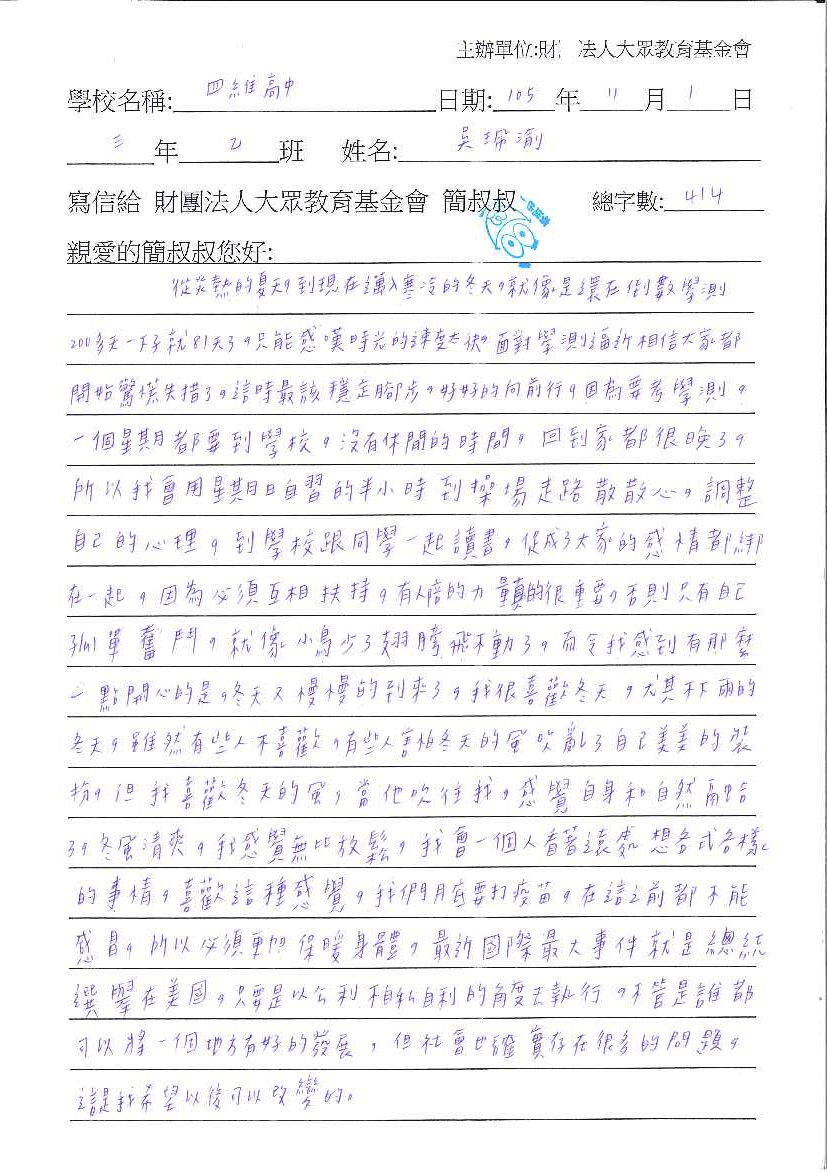 主辦單位:財 法人大眾教育基金會
學校名稱: 四維高中 日期: 105 年 11 月 1 日
三 年 乙 班 姓名: 吳珮渝
寫信給 財團法人大眾教育基金會 簡叔叔 總字數: 414
親愛的簡叔叔您好:
從炎熱的夏天,到現在邁入寒冷的冬天,就像是還在倒數學測
200多天一下子就81天了,只能感嘆時光的速度太快。面對學測逼近相信大家都
開始驚慌失措了,這時最該穩定腳步,好好的向前行。因為要考學測,
一個星期都要到學校,沒有休閒的時間,回到家都很晚了。
所以我會用星期日自習的半小時到操場走路散散心,調整
自己的心理,到學校跟同學一起讀書,促成了大家的感情都綁
在一起,因為必須互相扶持,有人陪的力量真的很重要,否則只有自己
孤單奮鬥,就像小鳥少了翅膀飛不動了。而令我感到有那麼
一點開心的是,冬天又慢慢的到來了,我很喜歡冬天,尤其不下雨的
冬天,雖然有些人不喜歡,有些人害怕冬天的風吹亂了自己美美的裝
扮,但我喜歡冬天的風,當他吹往我,感覺自身和自然融合
了。冬風清爽,我感覺無比放鬆,我會一個人看著遠處想各式各樣
的事情,喜歡這種感覺,我們月底要打疫苗,在這之前都不能
感冒,所以必須更加保暖身體,最近國際最大事件就是總統
選舉在美國,只要是以公利不自私自利的角度去執行,不管是誰都
可以將一個地方有好的發展,但社會也確實存在很多的問題,
這是我希望以後可以改變的。